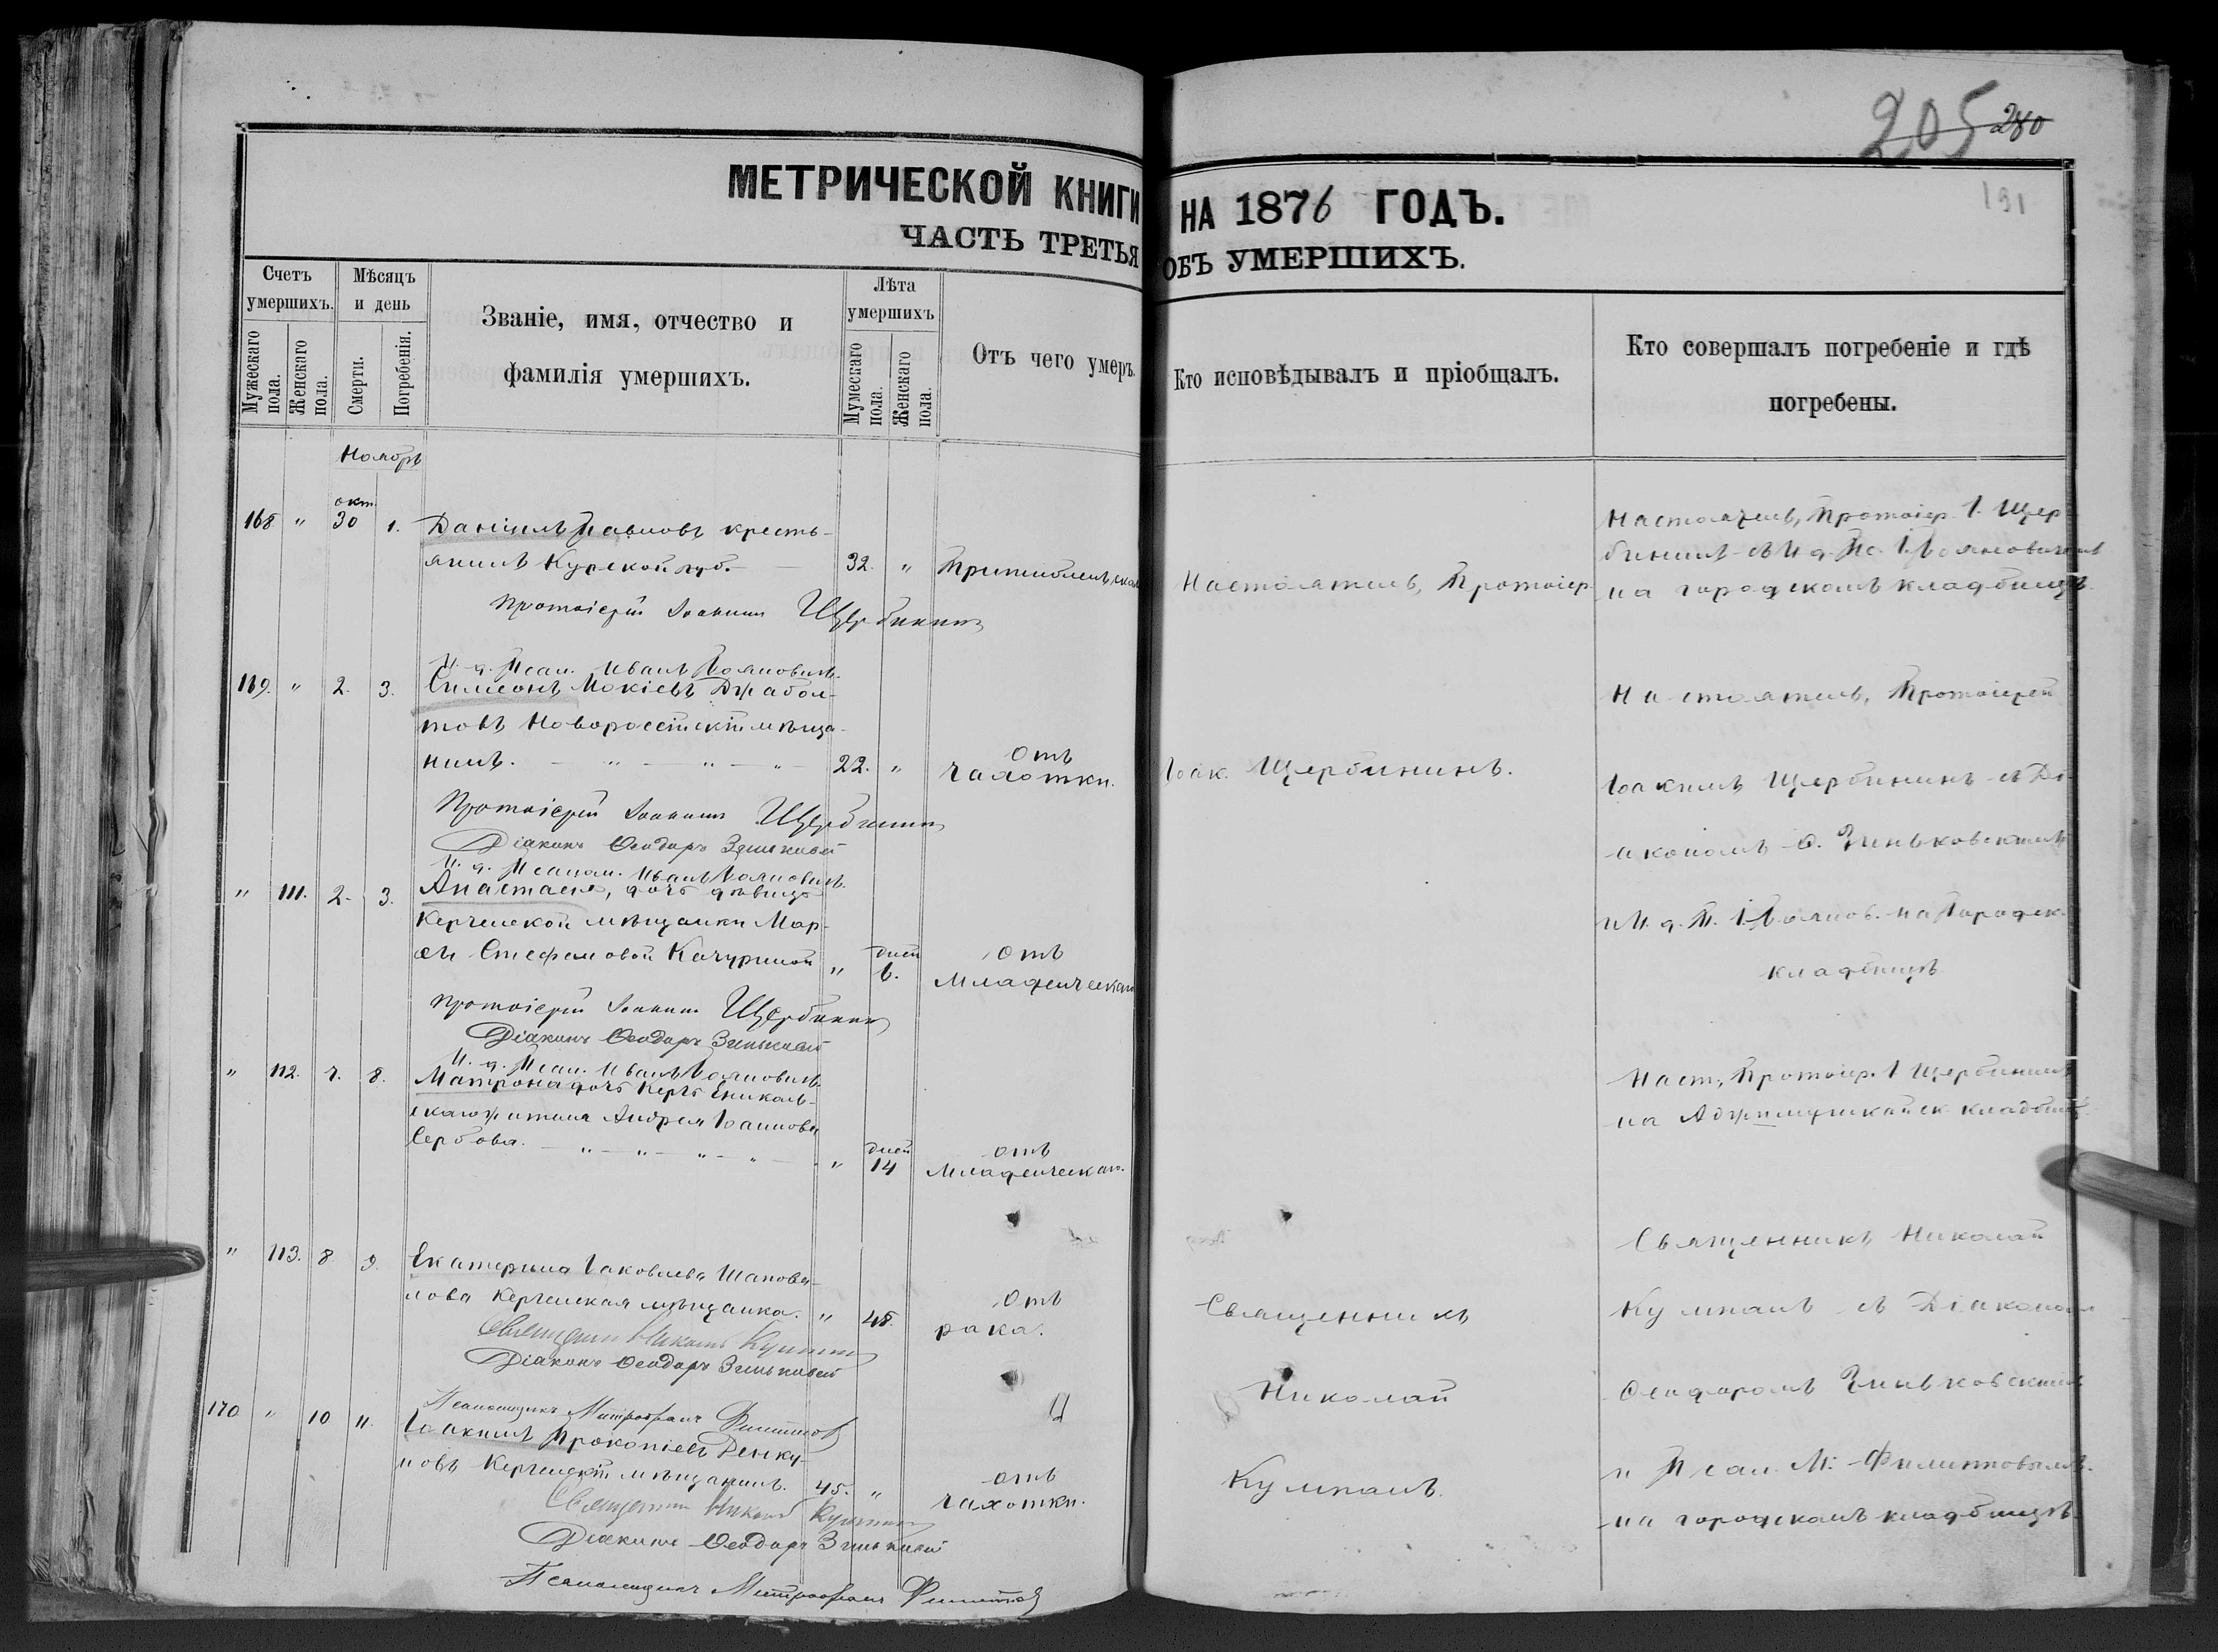 205 280
191
МЕТРИЧЕСКОЙ КНИГИ НА 1876 ГОДЪ.
ЧАСТЬ ТРЕТЬЯ ОБЪ УМЕРШИХЪ.
Счетъ умершихъ.
Мужескаго пола.
Женскаго пола.
Мѣсяцъ и день
Смерти.
Погребенія.
Званіе, имя, отчество и
фамилія умершихъ.
Лѣта умершихъ
Мужескаго пола.
Женскаго пола.
Отъ чего умеръ.
Кто исповѣдывалъ и пріобщалъ.
Кто совершалъ погребеніе и гдѣ
погребены.
Ноябрь
окт.
168 " 30 1. Даніилъ Павловъ кресть-
янинъ Курской губ. 32. "
Настоятель, Протоіер.
Настоятель, Протоіер. І. Щер-
бининъ съ И. д. Пс. І. Бояновичемъ
на городскомъ кладбищѣ.
Протоіерей Іоакимъ Щербининъ
И. д. Псал. Иванъ Бояновичъ.
169. " 2. 3. Симеонъ Мокіевъ Джабол-
товъ Новороссійскій мѣща-
нинъ. 22. " Отъ
чахотки.
Іоак. Щербининъ.
Настоятель, Протоіерей
Іоакимъ Щербининъ съ Ді-
акономъ Ѳ. Зиньковскимъ
и И. д. П. І. Боянов. на Городск.
кладбищѣ
Протоіерей Іоакимъ Щербининъ
Діаконъ Ѳеодоръ Зиньковскій
И. д. Псалом. Иванъ Бояновичъ.
" 111. 2. 3. Анастасія, дочь дѣвицы
Керченской мѣщанки Мар-
ѳи Стефановой Качуриной " дней
6. Отъ
младенческаго
Протоіерей Іоакимъ Щербининъ
Діаконъ Ѳеодоръ Зиньковскій
И. д. Псал. Иванъ Бояновичъ.
" 112. 7. 8. Матрона дочь Керчь Еникаль-
скаго жителя Андрея Іоаннова
Сербова. " дней
14 отъ
младенческаго.
Наст., Протоіер. І. Щербининъ
на Аджимушкайск. кладбищѣ.
" 113. 8. 9. Екатерина Іаковлева Шапова-
лова Керченская мѣщанка. " 48. Отъ
рака.
Священникъ
Николай
Кумпанъ.
Священникъ Николай
Кумпанъ съ Діакономъ
Ѳеодоромъ Зиньковскимъ
и Псал. М. Филипповымъ.
на городскомъ кладбищѣ.
Священникъ Николай Кумпанъ
Діаконъ Ѳеодоръ Зиньковскій
Псаломщикъ Митрофанъ Филипповъ
170 " 10 11. Іоакимъ Прокопіевъ Денку-
новъ Керченскій мѣщанинъ. 45. " отъ
чахотки.
Священникъ Николай Кумпанъ
Діаконъ Ѳеодоръ Зиньковскій
Псаломщикъ Митрофанъ Филипповъ